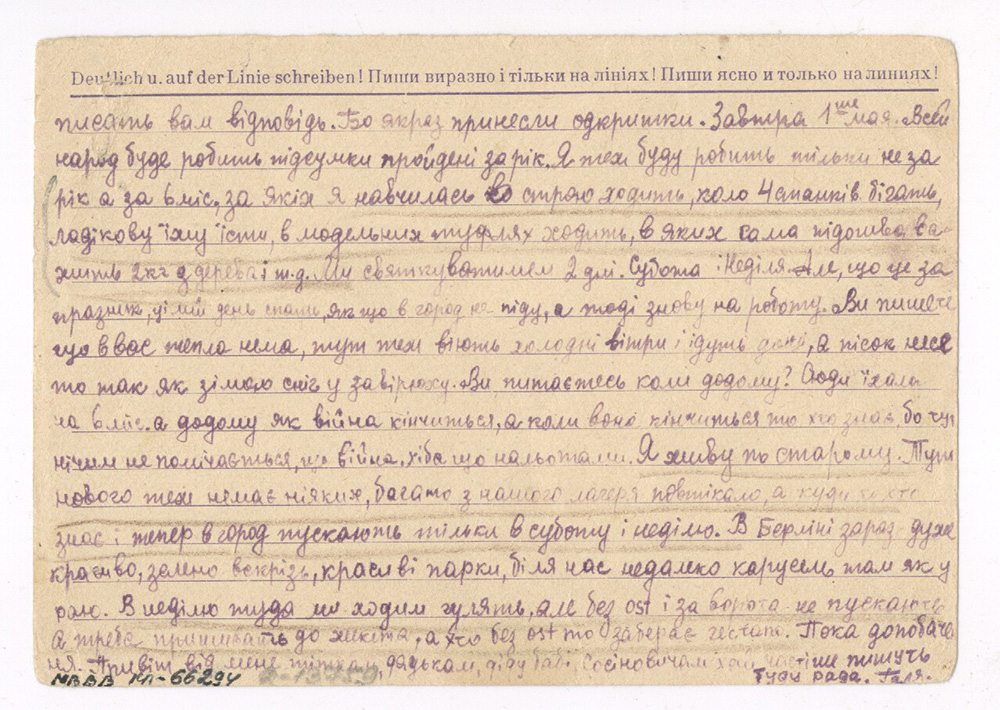 Deutlich u. auf der Linie schreiben! Пиши виразно і тільки на лініях! Пиши ясно и только на линиях!
писать вам відповідь. Бо якраз принесли одкритки. Завтра 1ше мая. Всей
народ буде робить підсумки пройдені за рік. Я теж буду робить тільки не за
рік а за 6 міс, за якіх я навчилась во строю ходить, коло 4 станків бігать,
ладікову їжу їсти, в модельних туфлях ходить, в яких сама підошва ва
жить 2 кг з дерева і т.д. Ми святкуватимем 2 дні. Субота і Неділя. Але, що це за
празник, цілий день спати, якщо в город не піду, а тоді знову на роботу. Ви пишете
що в вас тепла нема, тут теж віють холодні вітри і ідуть дощі, а пісок несе
то так як зімою сніг у завірюху. Ви питаєтесь коли додому? Сюди їхали
на 6 міс. а додому як війна кінчиться, а коли вона кінчиться то хто знає, бо тут
нічим не помічається, що війна, хіба що нальотами. Я живу по старому. Тут
нового теж немає ніяких, багато з нашого лагеря повтікало, а куди то хто
знає і тепер в город пускають тільки в суботу і неділю. В Берліні зараз дуже
красиво, зелено вскрізь, красиві парки, біля нас недалеко карусель там як у
раю. В неділю туда ми ходим гулять, але без ost і за ворота не пускають
А треба пришивать до жакета, а хто без ost то заберає гестапо. Пока до побаче
ня. Привіт від мене тіткам, дядькам, діду бабі, Сосіновичам хай частіше пишуть
Буду рада. Галя.
МВВВ КП-66294